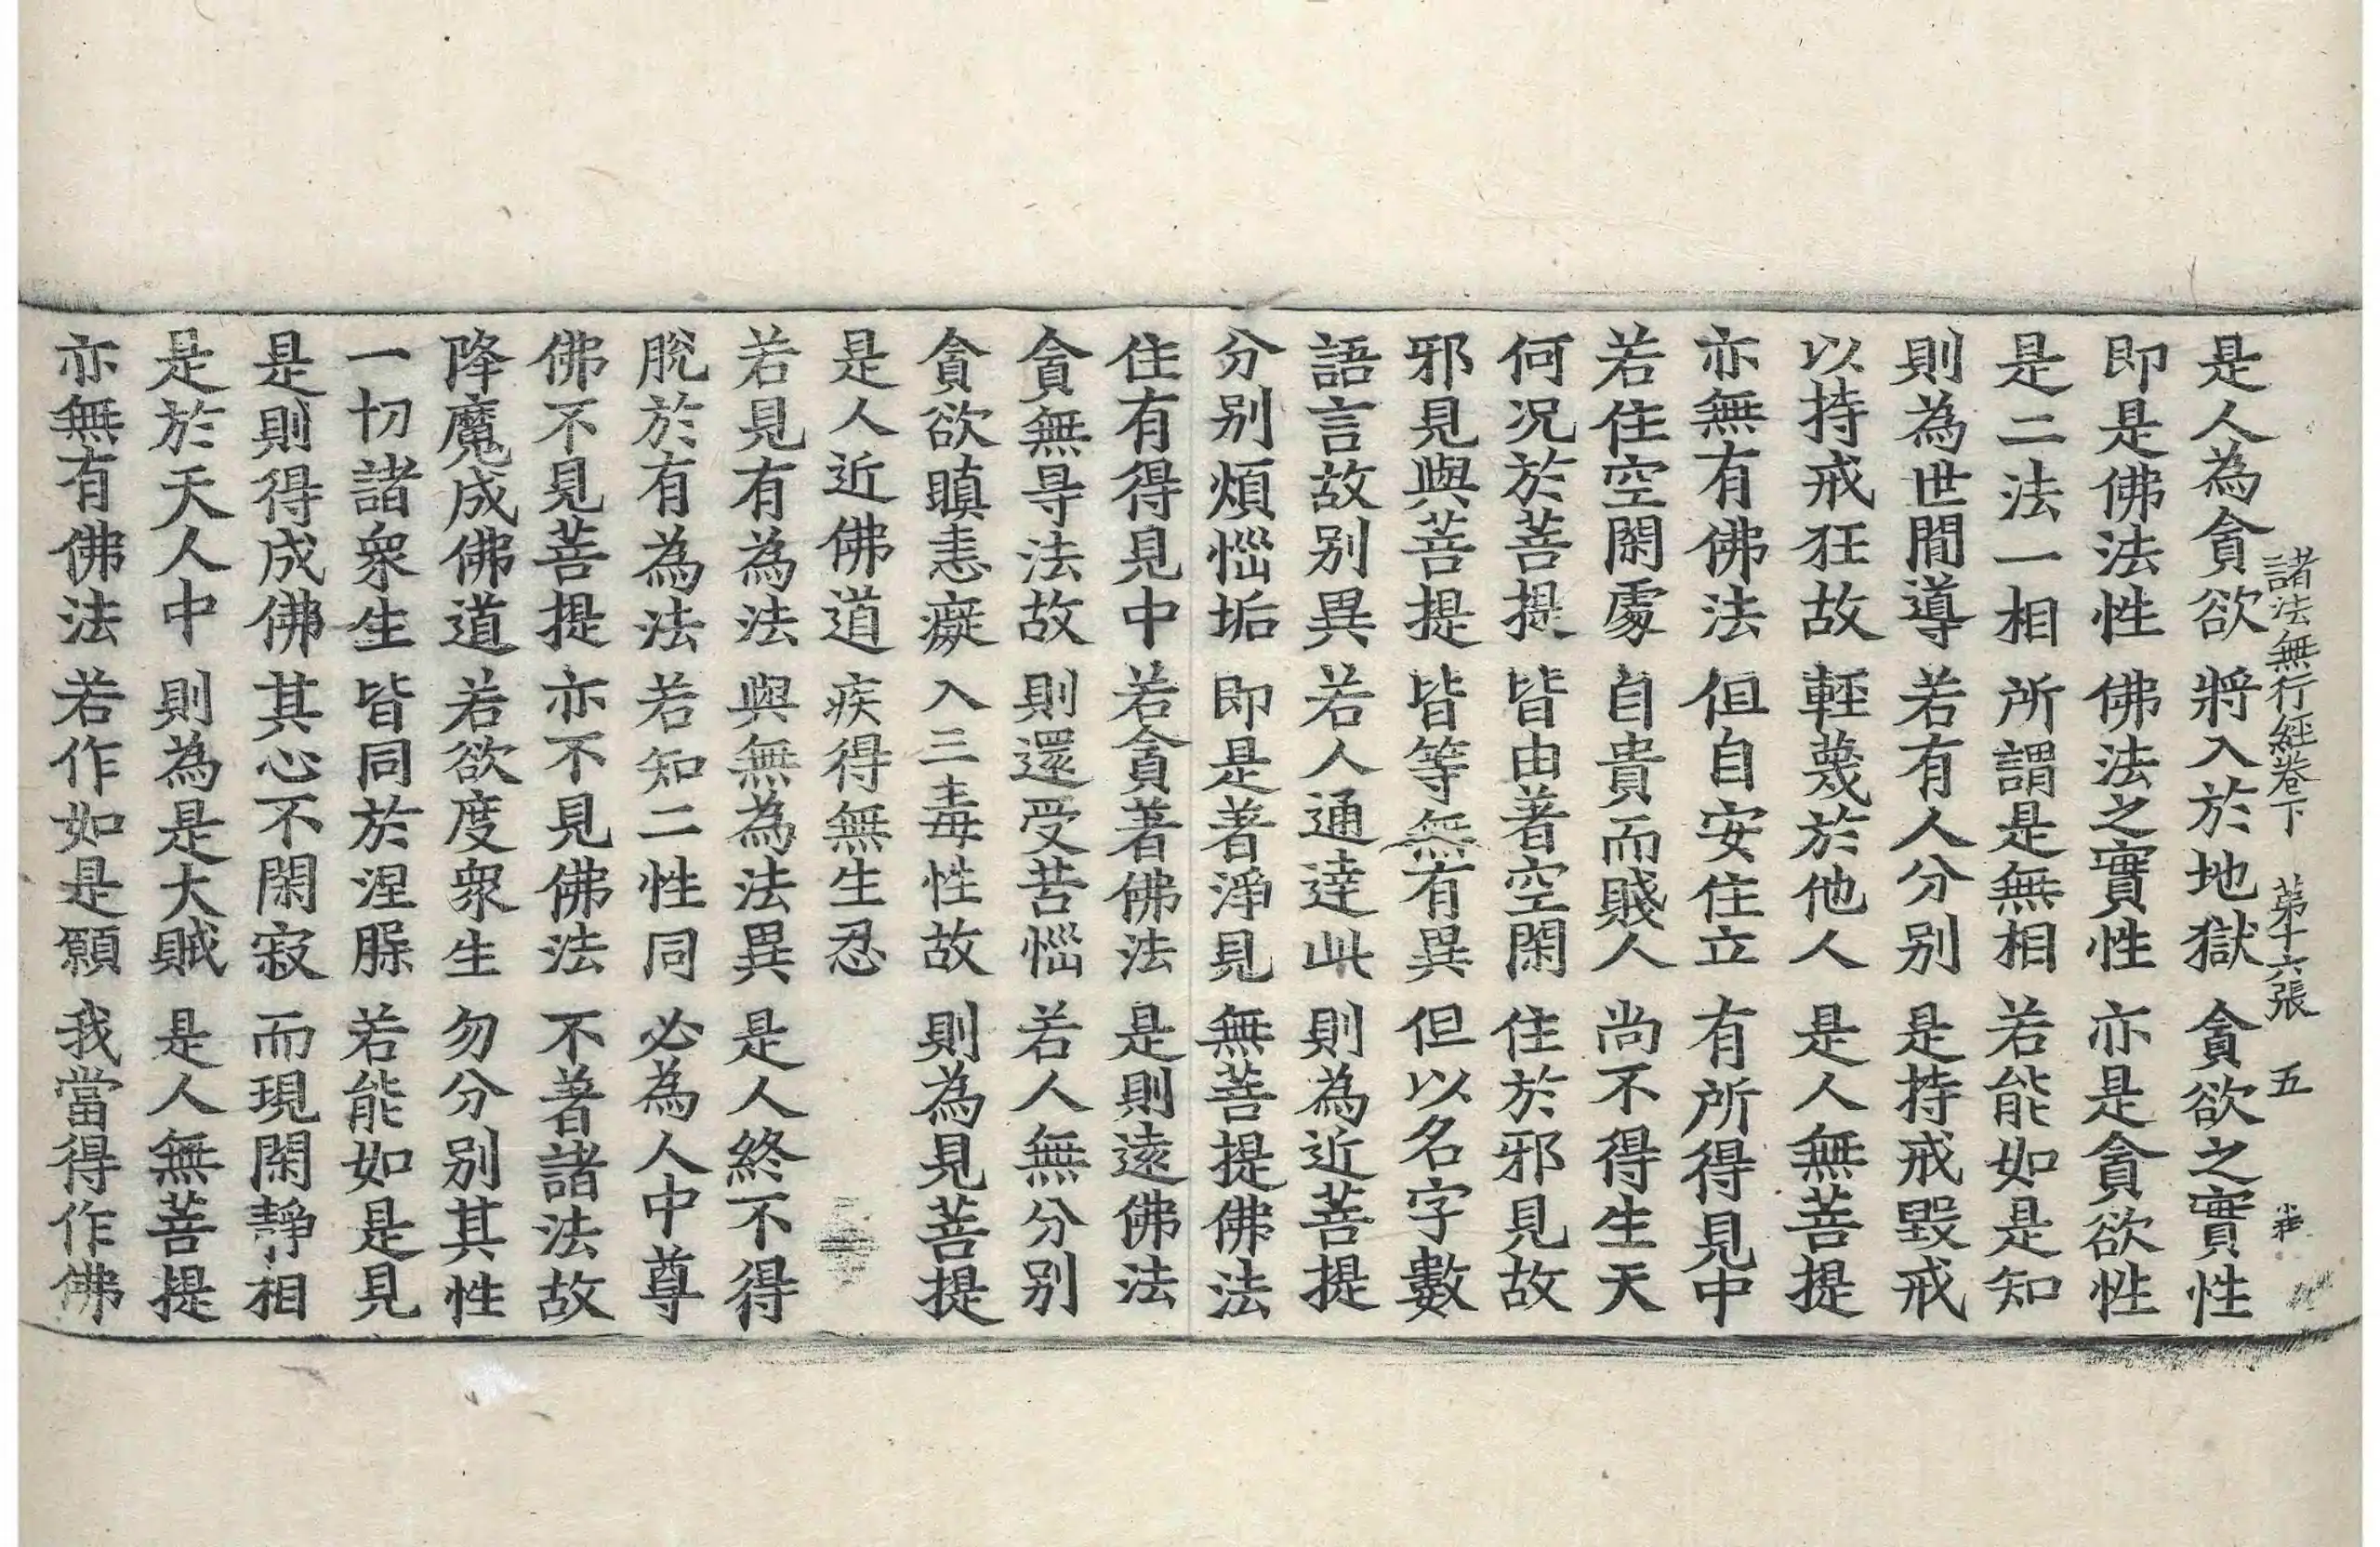 諸法無行經卷下 第十六張 五
是人為貪欲 將入於地獄 貪欲之實性
即是佛法性 佛法之實性 亦是貪欲性
是二法一相 所謂是無相 若能如是知
則為世間導 若有人分别 是持戒毀戒
以持戒狂故 輕蔑於他人 是人無菩提
亦無有佛法 但自安住立 有所得見中
若住空閑處 自貴而賤人 尚不得生天
何况於菩提 皆由著空閑 住於邪見故
邪見與菩提 皆等無有異 但以名字數
語言故别異 若人通達此 則為近菩提
分别煩惱垢 即是著淨見 無菩提佛法
住有得見中 若貪著佛法 是則遠佛法
貪無㝵法故 則還受苦惱 若人無分别
貪欲瞋恚癡 入三毒性故 則為見菩提
是人近佛道 疾得無生忍
若見有為法 與無為法異 是人終不得
脫於有為法 若知二性同 必為人中尊
佛不見菩提 亦不見佛法 不著諸法故
降魔成佛道 若欲度衆生 勿分别其性
一切諸衆生 皆同於涅槃 若能如是見
是則得成佛 其心不閑寂 而現閑靜相
是於天人中 則為是大賊 是人無菩提
亦無有佛法 若作如是願 我當得作佛